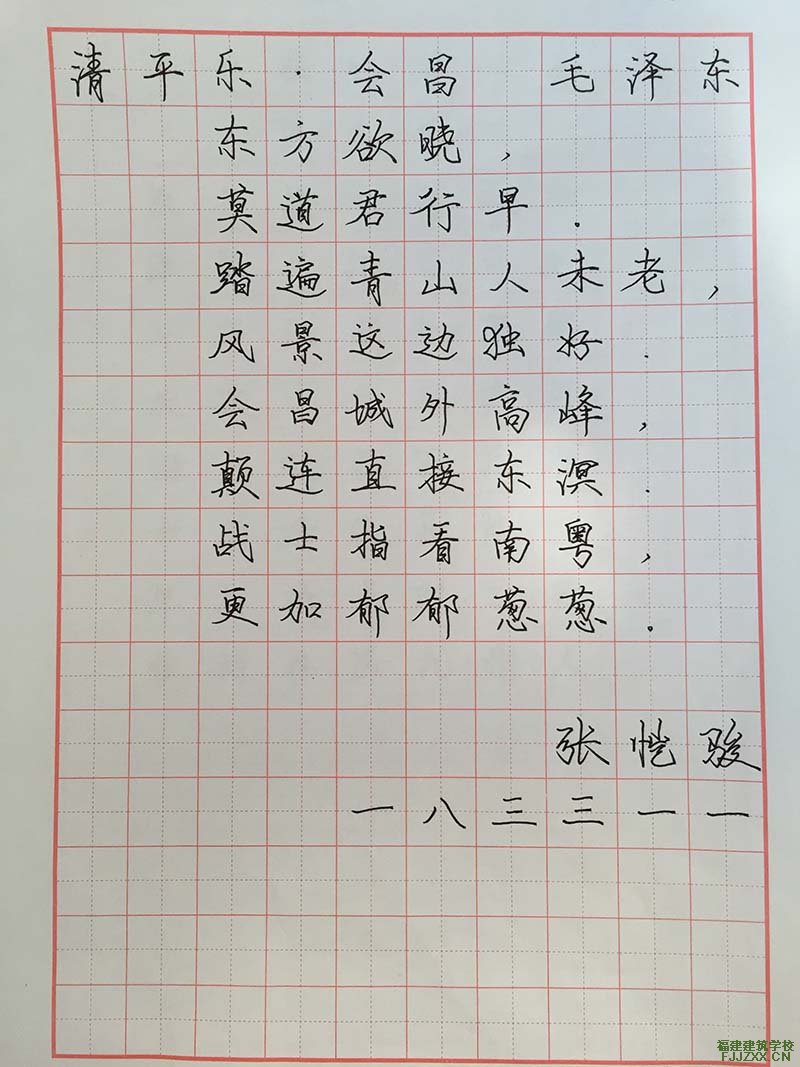 清平乐·会昌 毛泽东
东方欲晓，
莫道君行早．
踏遍青山人未老，
风景这边独好．
会昌城外高峰，
颠连直接东溟．
战士指看南粤，
更加郁郁葱葱。
张恺骏
一八三三一一
福建建筑学校
FJJZXX.CN